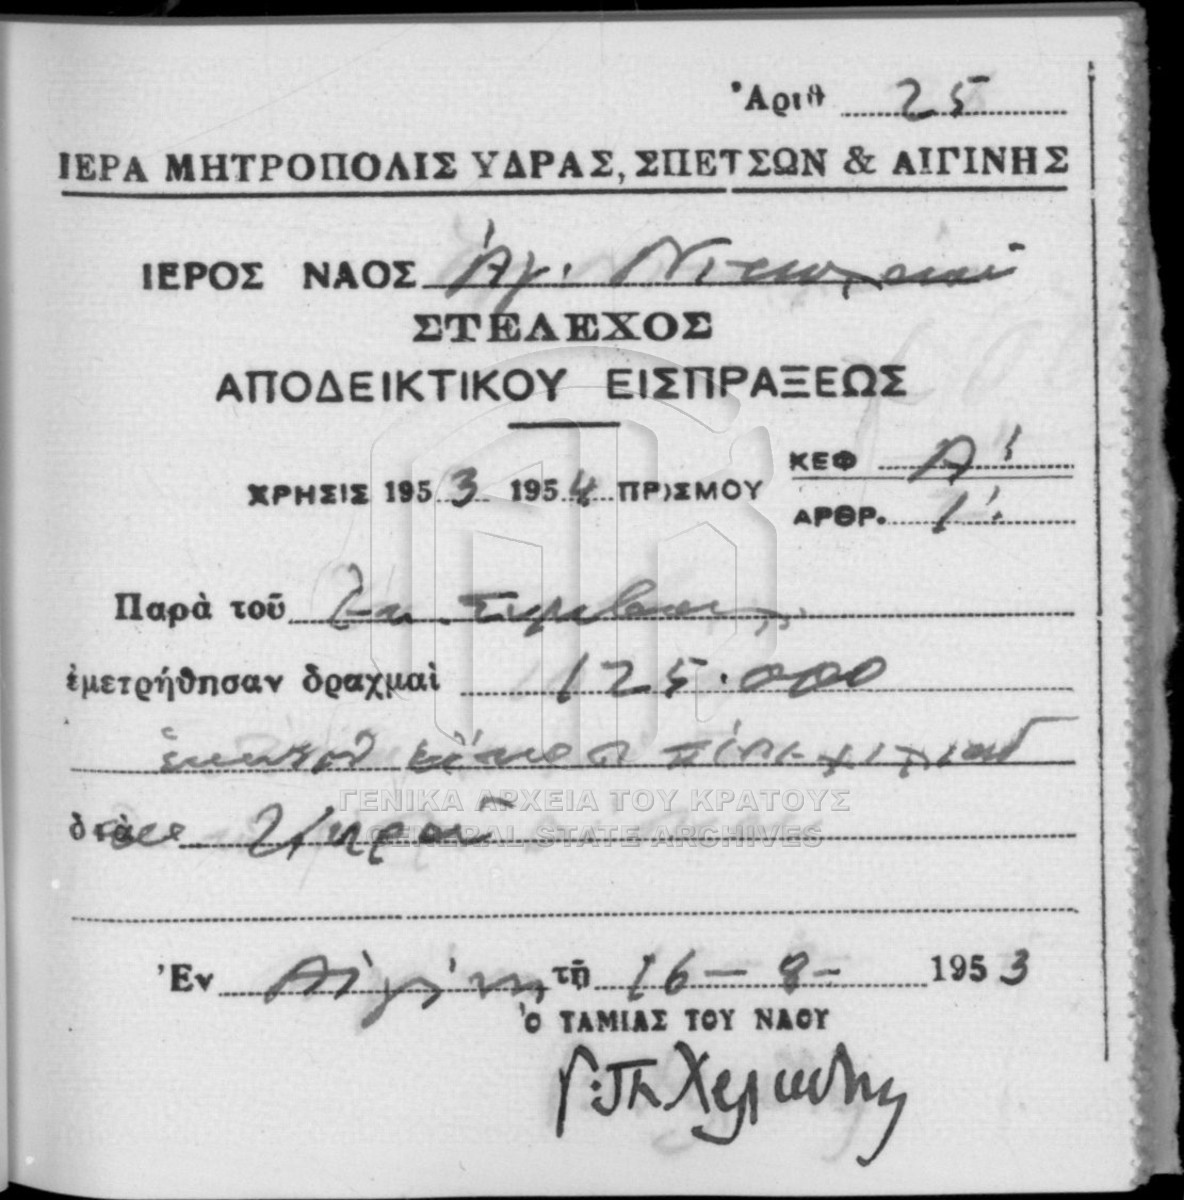 Ἀριθ 25
ΙΕΡΑ ΜΗΤΡΟΠΟΛΙΣ ΥΔΡΑΣ, ΣΠΕΤΣΩΝ & ΑΙΓΙΝΗΣ
ΙΕΡΟΣ ΝΑΟΣ Ἁγ.
ΣΤΕΛΕΧΟΣ
ΑΠΟΔΕΙΚΤΙΚΟΥ ΕΙΣΠΡΑΞΕΩΣ
ΧΡΗΣΙΣ 1953 1954 ΠΡ)ΣΜΟΥ
ΚΕΦ Α'
ΑΡΘΡ. 1
Παρὰ τοῦ
ἐμετρήθησαν δραχμαὶ 125.000
ἑκατὸν εἴκοσι πέντε χιλιάδ
διὰ Κηροῦ
ΓΕΝΙΚΑ ΑΡΧΕΙΑ ΤΟΥ ΚΡΑΤΟΥΣ
GENERAL STATE ARCHIVES
Ἐν Αἰγίνῃ τῇ 16-8- 1953
Ὁ ΤΑΜΙΑΣ ΤΟΥ ΝΑΟΥ